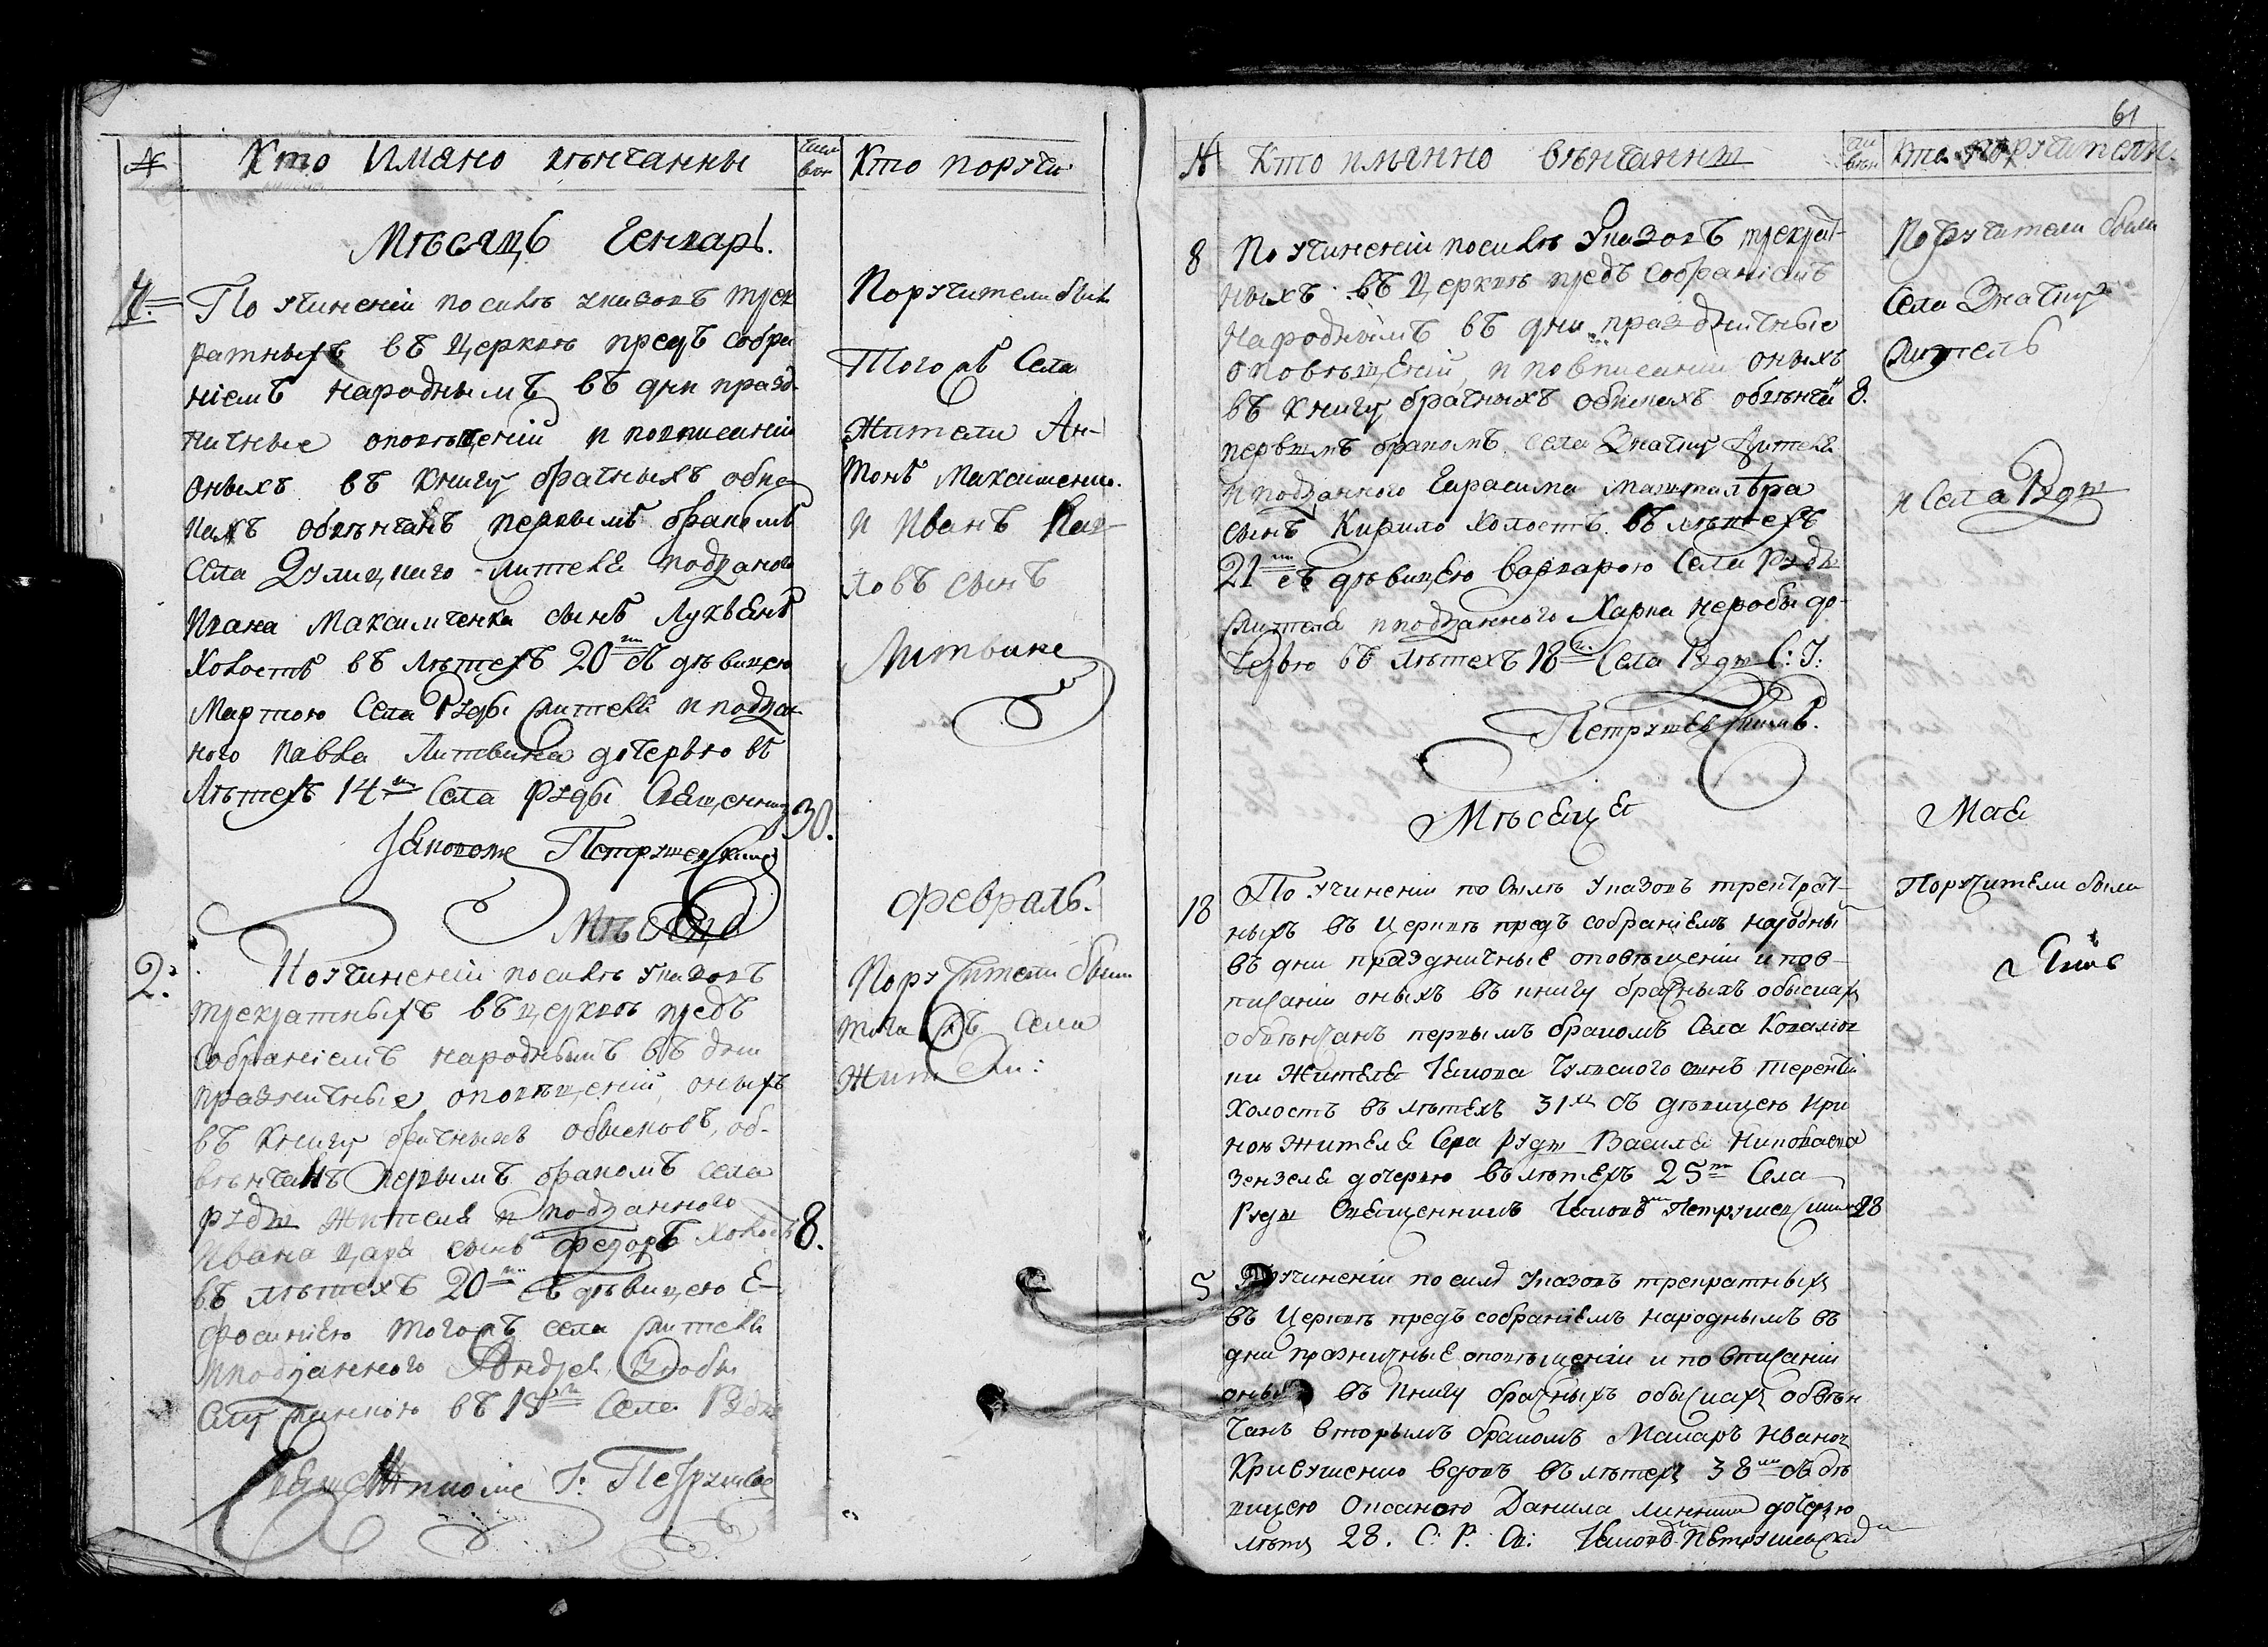 № Кто Имяно вѣнчанны Кто поручи
Мѣсяцъ Генварь.
1. По учиненіи по силѣ указовъ трек
ратныхъ въ церквѣ предъ собра
ніемъ народнымъ въ дни празд-
ничные оповѣщеній и повписаніи
оныхъ въ книгу брачныхъ обис
кахъ обвѣнчанъ первымъ бракомъ
Села жителя подданого
Ивана Максимченка сынъ Лукъянъ
Холостъ въ лѣтехъ 20 съ дѣвицею
Мартою Села Руды жителя и поддан
ного Павла Литвина дочерью въ
Лѣтехъ 14 Села Руды Священник
Іаковомъ Петрушевскимъ
30.
Поручители были
Того жъ Села
Жители Ан-
тонъ Максименко.
и Иванъ Пав-
ловъ сынъ
Литвине
Мѣсяца Февраль.
2. По учиненіи по силѣ указовъ
трекратныхъ въ церквѣ предъ
Собраніемъ народнымъ въ дни
празничные оповѣщеній, оныхъ
въ книгу брачныхъ обысковъ, об-
вѣнчанъ первымъ бракомъ села
Руды жителя и подданного
Ивана Царя сынъ Федоръ Холостъ 8.
въ лѣтехъ 20 съ дѣвицею Е-
фосинію того жъ села жителя
и подданного Андрея
въ 19 Села Руды
І: Петрушев
Поручители были
того жъ села
Жители:
61
№ Кто имянно вѣнчанны Кто поручители
8 По учиненіи по силѣ Указовъ трекрат-
ныхъ въ Церквѣ предъ Собраніемъ
Народнымъ въ дни праздничные
оповѣщеній, и повписаніи оныхъ
въ книгу брачныхъ обыскахъ обвѣнчан 8.
первымъ бракомъ села жителя
и подданного Гарасима
сынъ Кирило холостъ въ лѣтехъ
21 съ дѣвицею Варварою Села Руды
жителя и подданного Харка Неробы до-
черью въ лѣтехъ 18 Села Руды С: І:
Петрушевскимъ.
Поручители были
Села
житель
и Села Руды
Мѣсяца Мая
18 По учиненіи по силѣ указовъ трекрат-
ныхъ въ Церквѣ предъ собраніемъ народны
въ дни праздничные оповѣщеніи и пов-
писаніи оныхъ въ книгу брачныхъ обысках
обвѣнчанъ первымъ бракомъ Села Ковалю
ки Жителя Іякова сынъ Терентій
Холостъ въ лѣтехъ 31 съ дѣвицею Ири
ною жителя Села Руды Василя Николаева
Зензеля дочерью въ лѣтехъ 25 Села
Руды Священникъ Іяковъ Петрушевскимъ 28
Поручители были
5 По учиненіи по силѣ указовъ трекратных
въ Церквѣ предъ собраніемъ народнымъ въ
дни празничные оповѣщеніи и по вписаніи
оныхъ въ книгу брачныхъ обыскахъ обвѣн
чанъ вторымъ бракомъ Макаръ Иванов
Кривушенко вдовъ въ лѣтех 38 съ дѣ
вицею Оксаною Данила дочерю
лѣтъ 28. С: Р: Св: Іяковъ Петрушевский